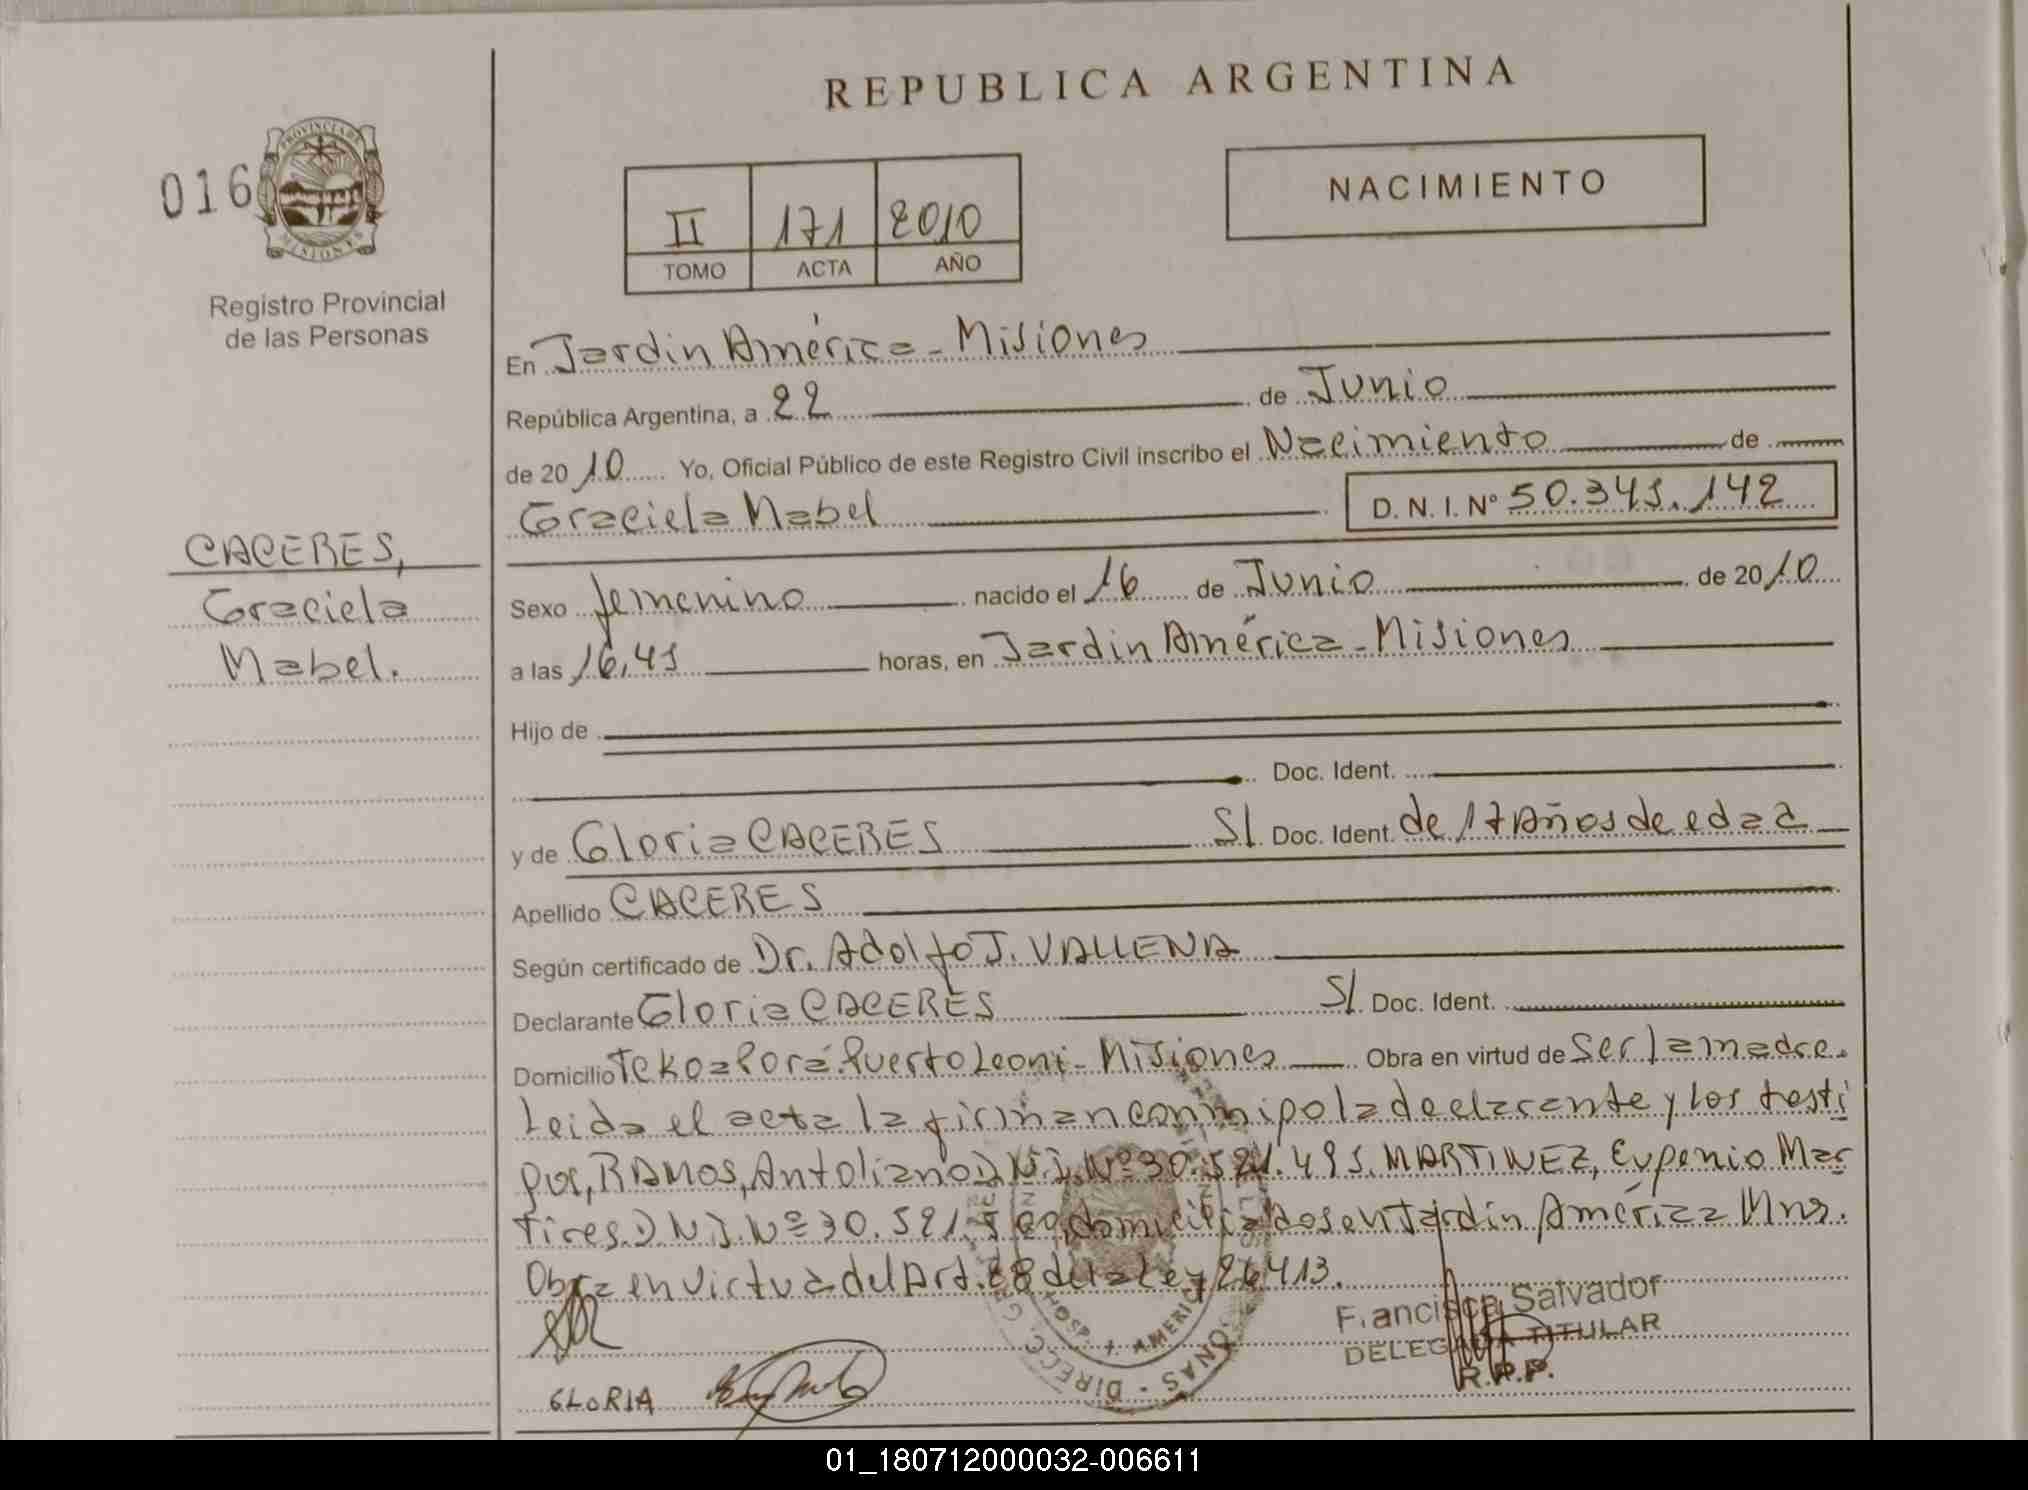 REPUBLICA ARGENTINA
016
PROVINCIA DE
MISIONES
Registro Provincial
de las Personas
II 171 2010
TOMO ACTA AÑO
NACIMIENTO
En Jardin América - Misiones
República Argentina, a 22 de Junio
de 2010 Yo, Oficial Público de este Registro Civil inscribo el Nacimiento de
Graciela Mabel D. N. I. Nº 50.341.142
CACERES,
Graciela
Mabel.
Sexo femenino nacido el 16 de Junio de 2010
a las 16,41 horas, en Jardin América - Misiones
Hijo de
Doc. Ident.
y de Gloria CACERES S/. Doc. Ident. de 17 Años de edad
Apellido CACERES
Según certificado de Dr. Adolfo J. VALLENA
Declarante Gloria CACERES S/. Doc. Ident.
Domicilio Tekoa Porá. Puerto Leoni - Misiones Obra en virtud de Ser la madre.
Leida el acta la firman conmigo la declarante y los testi
gos, RAMOS, Antoliano D.N.I. Nº 30.521.491. MARTINEZ, Eugenio Mar
tires D.N.I. Nº 30.521. domiciliados en Jardin América Mns.
Obra en virtud del Art. 28 de la Ley 26413.
Francisca Salvador
DELEGADA TITULAR
R.P.P.
GLORIA
HOSP. AMERICA
DIRECC.
01_180712000032-006611